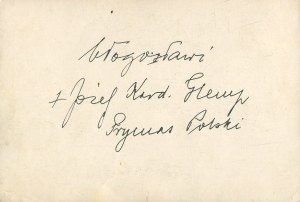 błogosławi
+ Józef Kard. Glemp
Prymas Polski